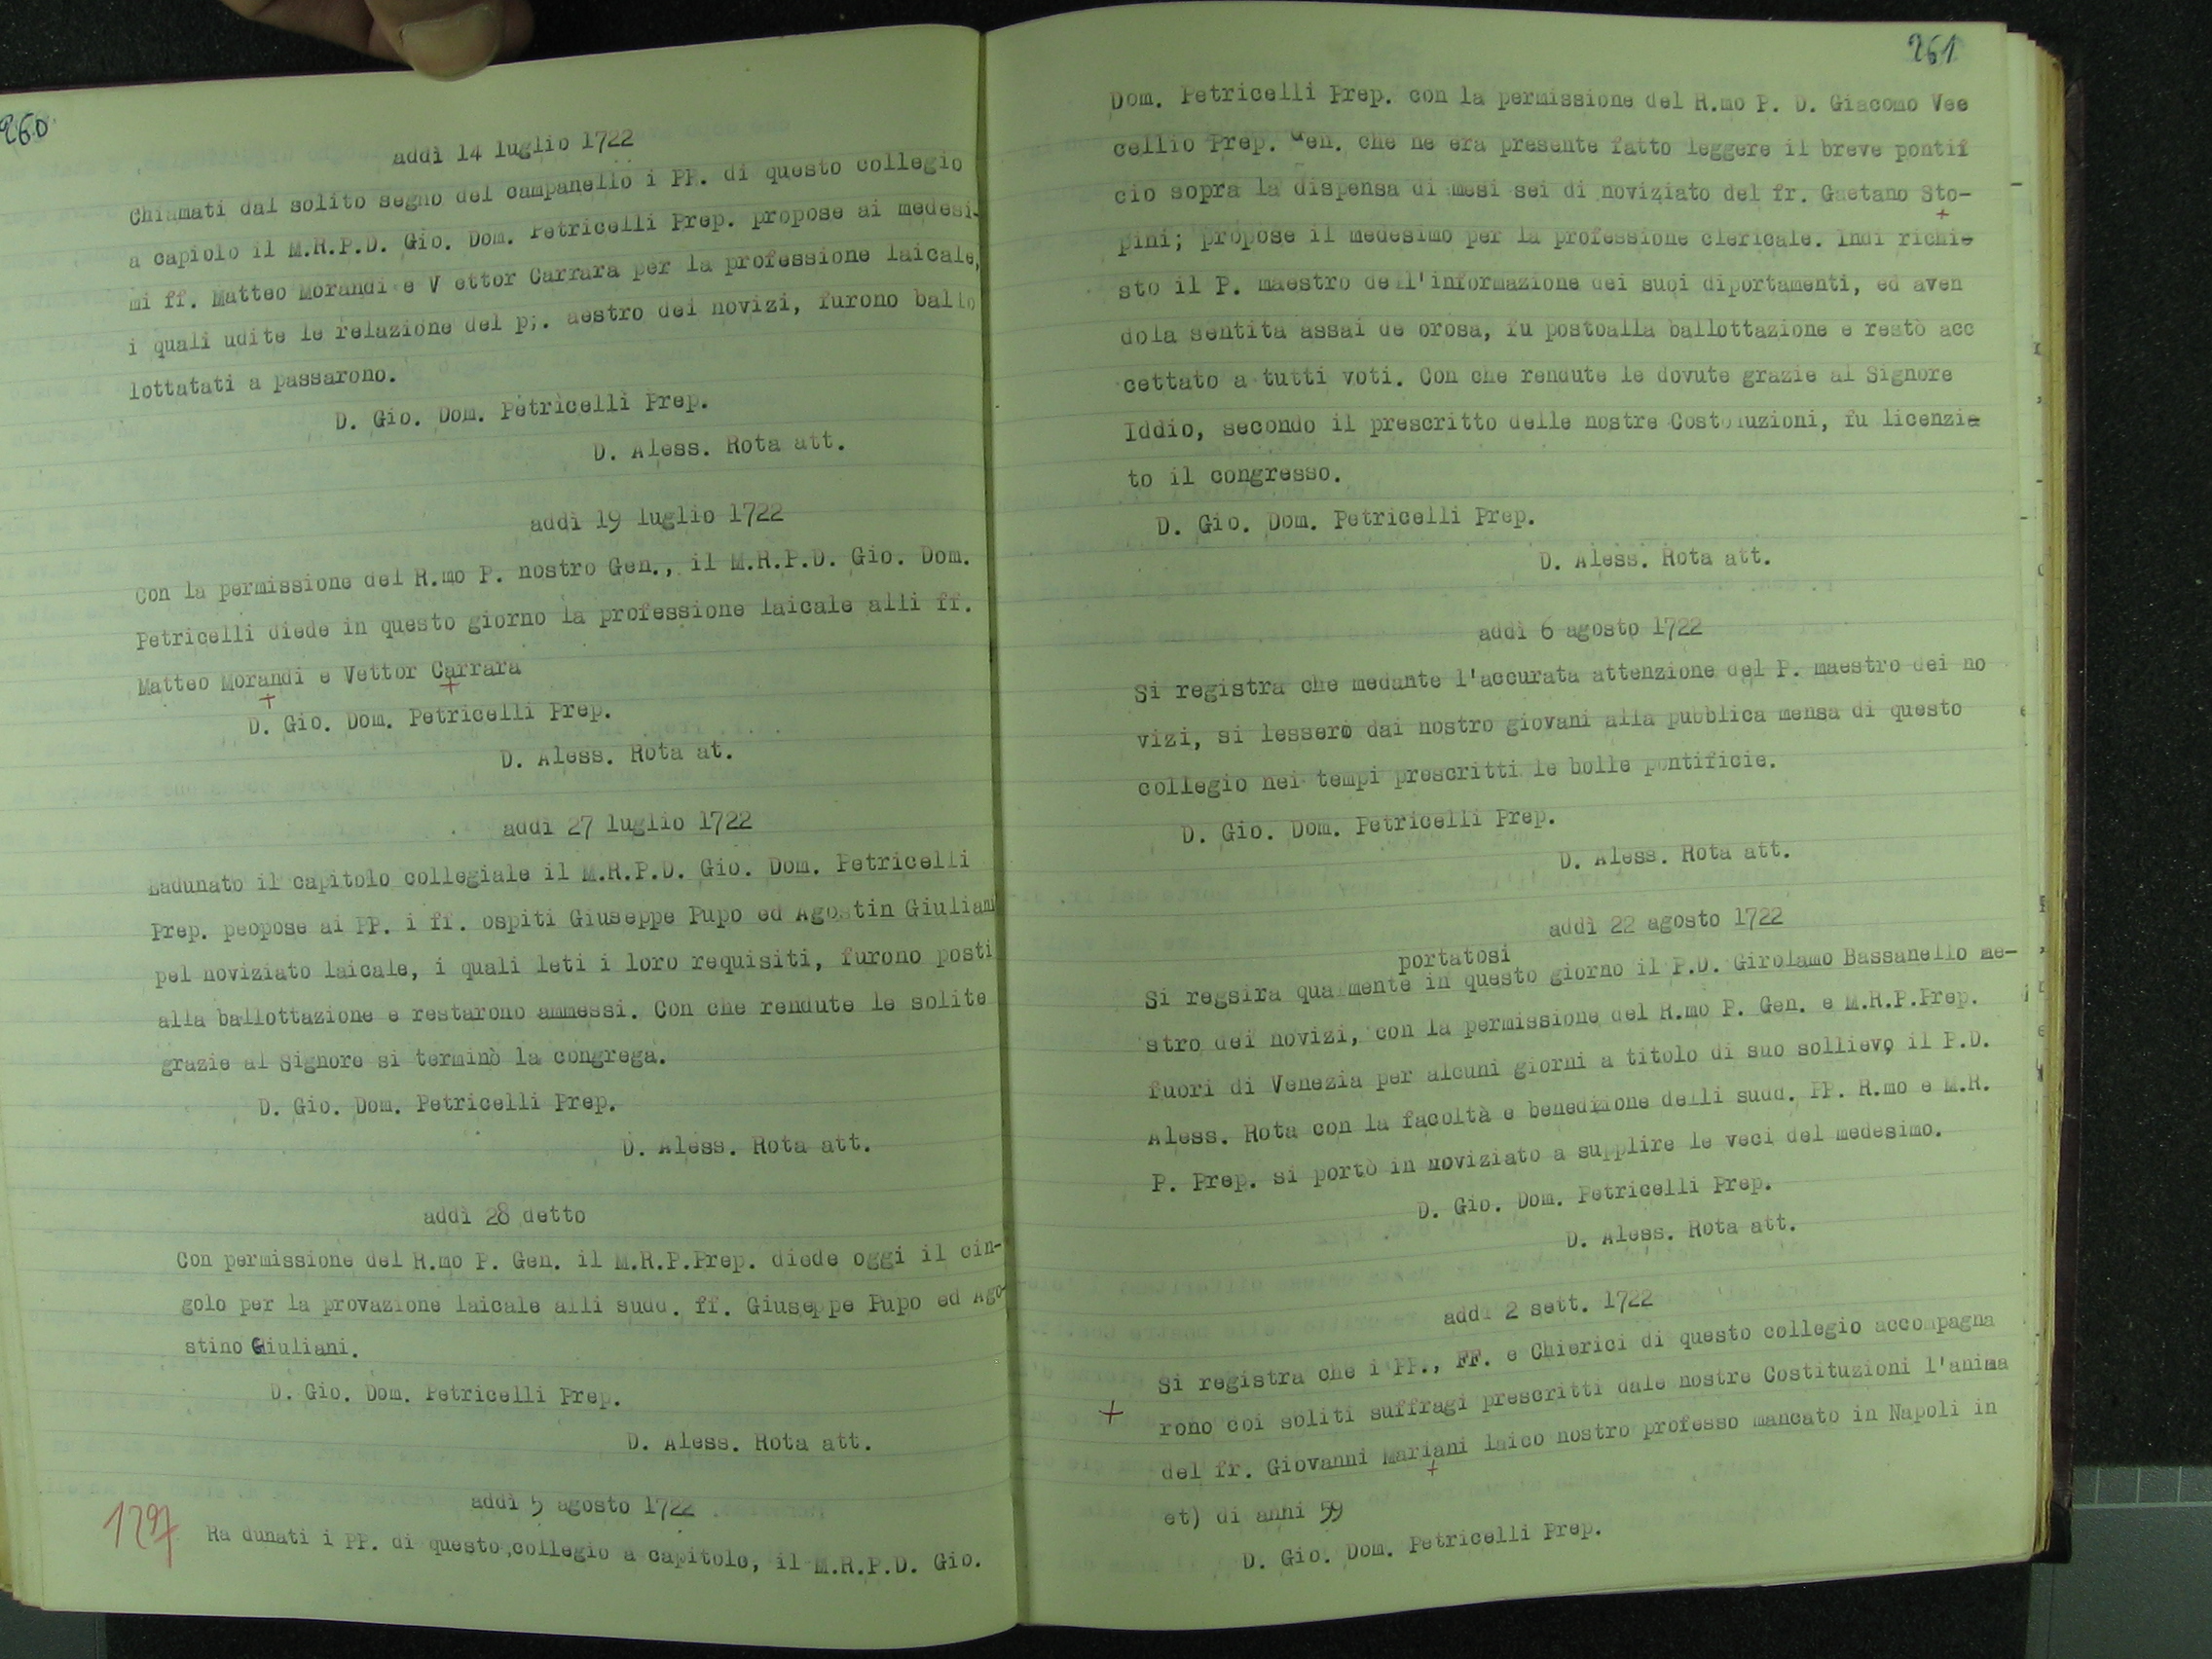 260
addì 14 luglio 1722
Chiamati dal solito segno del campanello i PP. di questo collegio
a capiolo il M.R.P.D. Gio. Dom. Petricelli Prep. propose ai medesi-
mi ff. Matteo Morandi e V ettor Carrara per la professione laicale,
i quali udite le relazione del p;. aestro dei novizi, furono ballo
lottatati a passarono.
D. Gio. Dom. Petricelli Prep.
D. Aless. Rota att.
addì 19 luglio 1722
Con la permissione del R.mo P. nostro Gen., il M.R.P.D. Gio. Dom.
Petricelli diede in questo giorno la professione laicale alli ff.
Matteo Morandi e Vettor Carrara
D. Gio. Dom. Petricelli Prep.
D. Aless. Rota at.
addì 27 luglio 1722
Radunato il capitolo collegiale il M.R.P.D. Gio. Dom. Petricelli
Prep. peopose ai PP. i ff. ospiti Giuseppe Pupo ed Agostin Giuliani
pel noviziato laicale, i quali leti i loro requisiti, furono posti
alla ballottazione e restarono ammessi. Con che rendute le solite
grazie al Signore si terminò la congrega.
D. Gio. Dom. Petricelli Prep.
D. Aless. Rota att.
addì 28 detto
Con permissione del R.mo P. Gen. il M.R.P.Prep. diede oggi il cin-
golo per la provazione laicale alli sudd. ff. Giuseppe Pupo ed Ago-
stino Giuliani.
D. Gio. Dom. Petricelli Prep.
D. Aless. Rota att.
addì 5 agosto 1722
1297
Ra dunati i PP. di questo collegio a capitolo, il M.R.P.D. Gio.
261
Dom. Petricelli Prep. con la permissione del R.mo P. D. Giacomo Vee
cellio Prep. Gen. che ne era presente fatto leggere il breve pontif
cio sopra la dispensa di mesi sei di noviziato del fr. Gaetano Sto-
pini; propose il medesimo per la professione clericale. Indi richie
sto il P. maestro dell'informazione dei suoi diportamenti, ed aven
dola sentita assai de orosa, fu postoalla ballottazione e restò acc
cettato a tutti voti. Con che rendute le dovute grazie al Signore
Iddio, secondo il prescritto delle nostre Costouzioni, fu licenzia
to il congresso.
D. Gio. Dom. Petricelli Prep.
D. Aless. Rota att.
addì 6 agosto 1722
Si registra che medante l'accurata attenzione del P. maestro dei no
vizi, si lessero dai nostro giovani alla pubblica mensa di questo
collegio nei tempi prescritti le bolle pontificie.
D. Gio. Dom. Petricelli Prep.
D. Aless. Rota att.
addì 22 agosto 1722
portatosi
Si regsira qualmente in questo giorno il P.D. Girolamo Bassanello ae-
stro dei novizi, con la permissione del R.mo P. Gen. e M.R.P.Prep.
fuori di Venezia per alcuni giorni a titolo di suo sollievo il P.D.
Aless. Rota con la facoltà e benedizione delli sudd. PP. R.mo e M.R.
P. Prep. si portò in noviziato a supplire le veci del medesimo.
D. Gio. Dom. Petricelli Prep.
D. Aless. Rota att.
addì 2 sett. 1722
Si registra che i PP., FF. e Chierici di questo collegio accompagna
+ rono coi soliti suffragi prescritti dale nostre Costituzioni l'anima
del fr. Giovanni Mariani laico nostro professo mancato in Napoli in
et) di anni 59
D. Gio. Dom. Petricelli Prep.